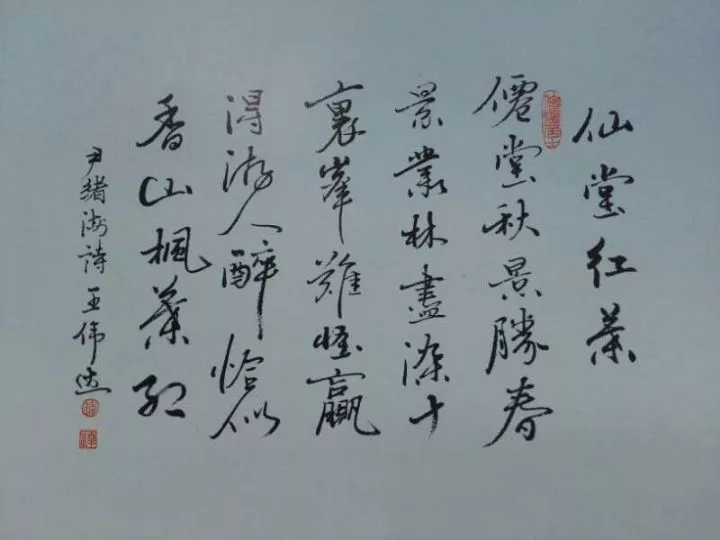 仙堂红叶
僊堂秋景勝春
景叢林盡染十
裏峯難怪贏
得游人醉恰似
香山楓葉紅
尹緒湖詩王伟达